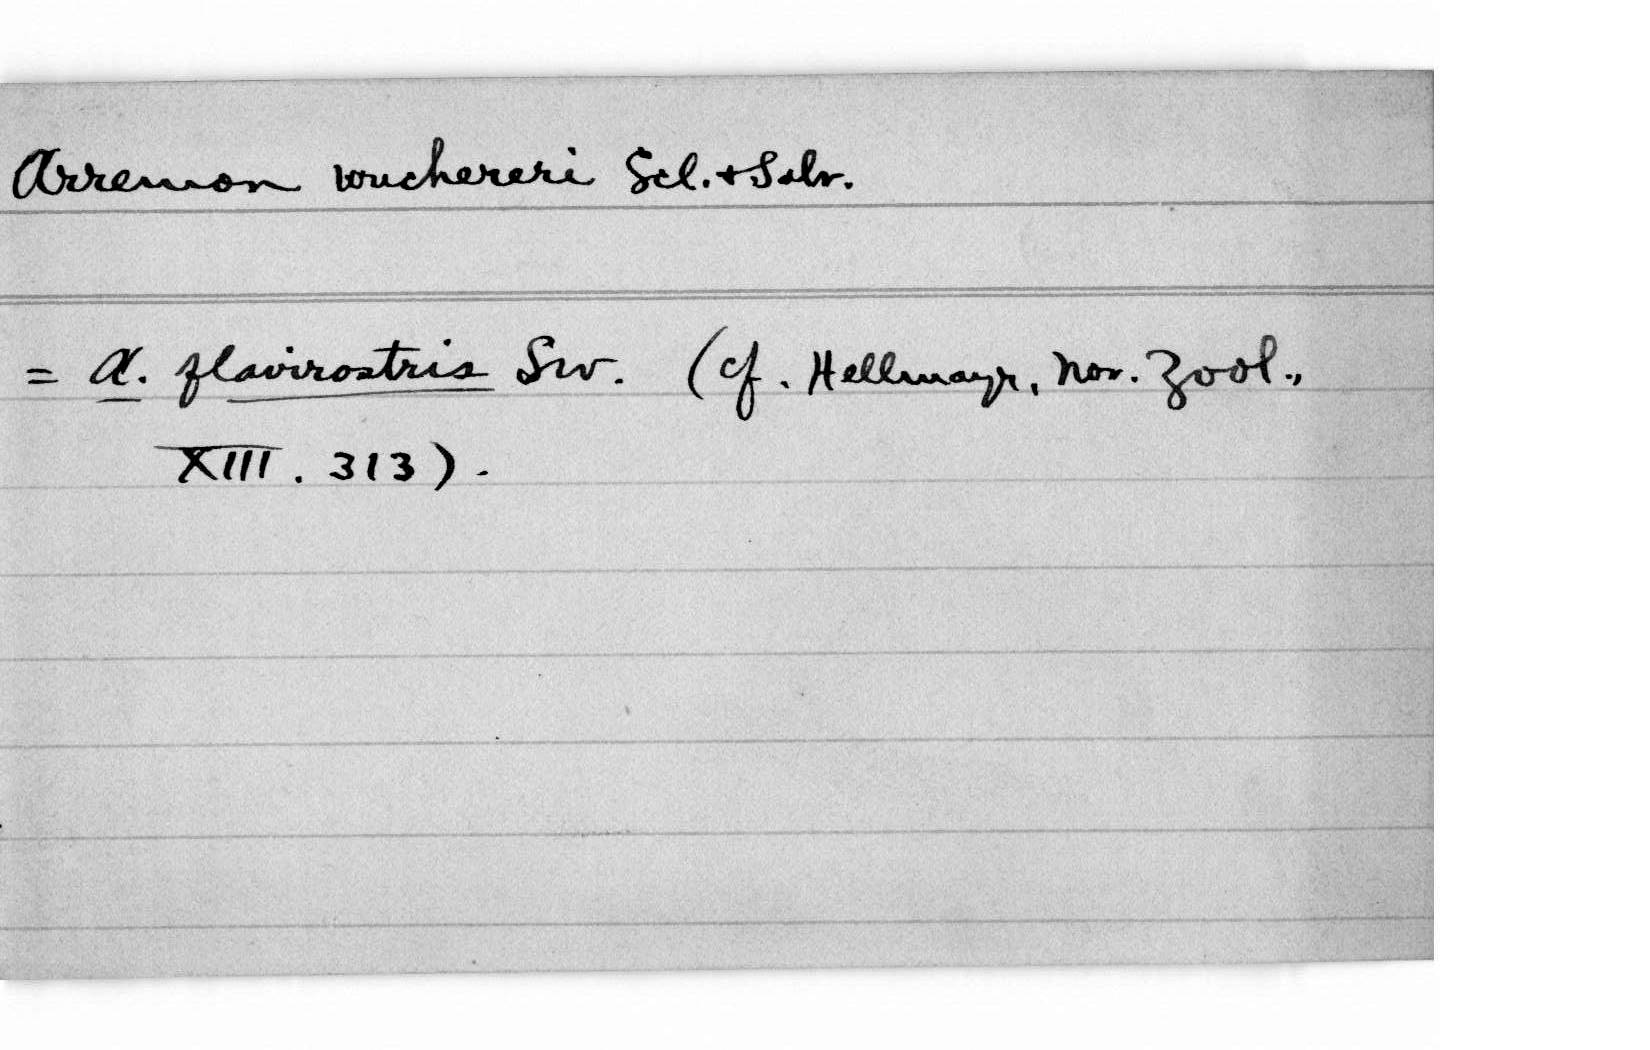 Arremon wuchereri Scl. + Salv.
= A. flavirostris Sw. (cf. Hellmayr, Nov. Zool.,
XIII. 313).